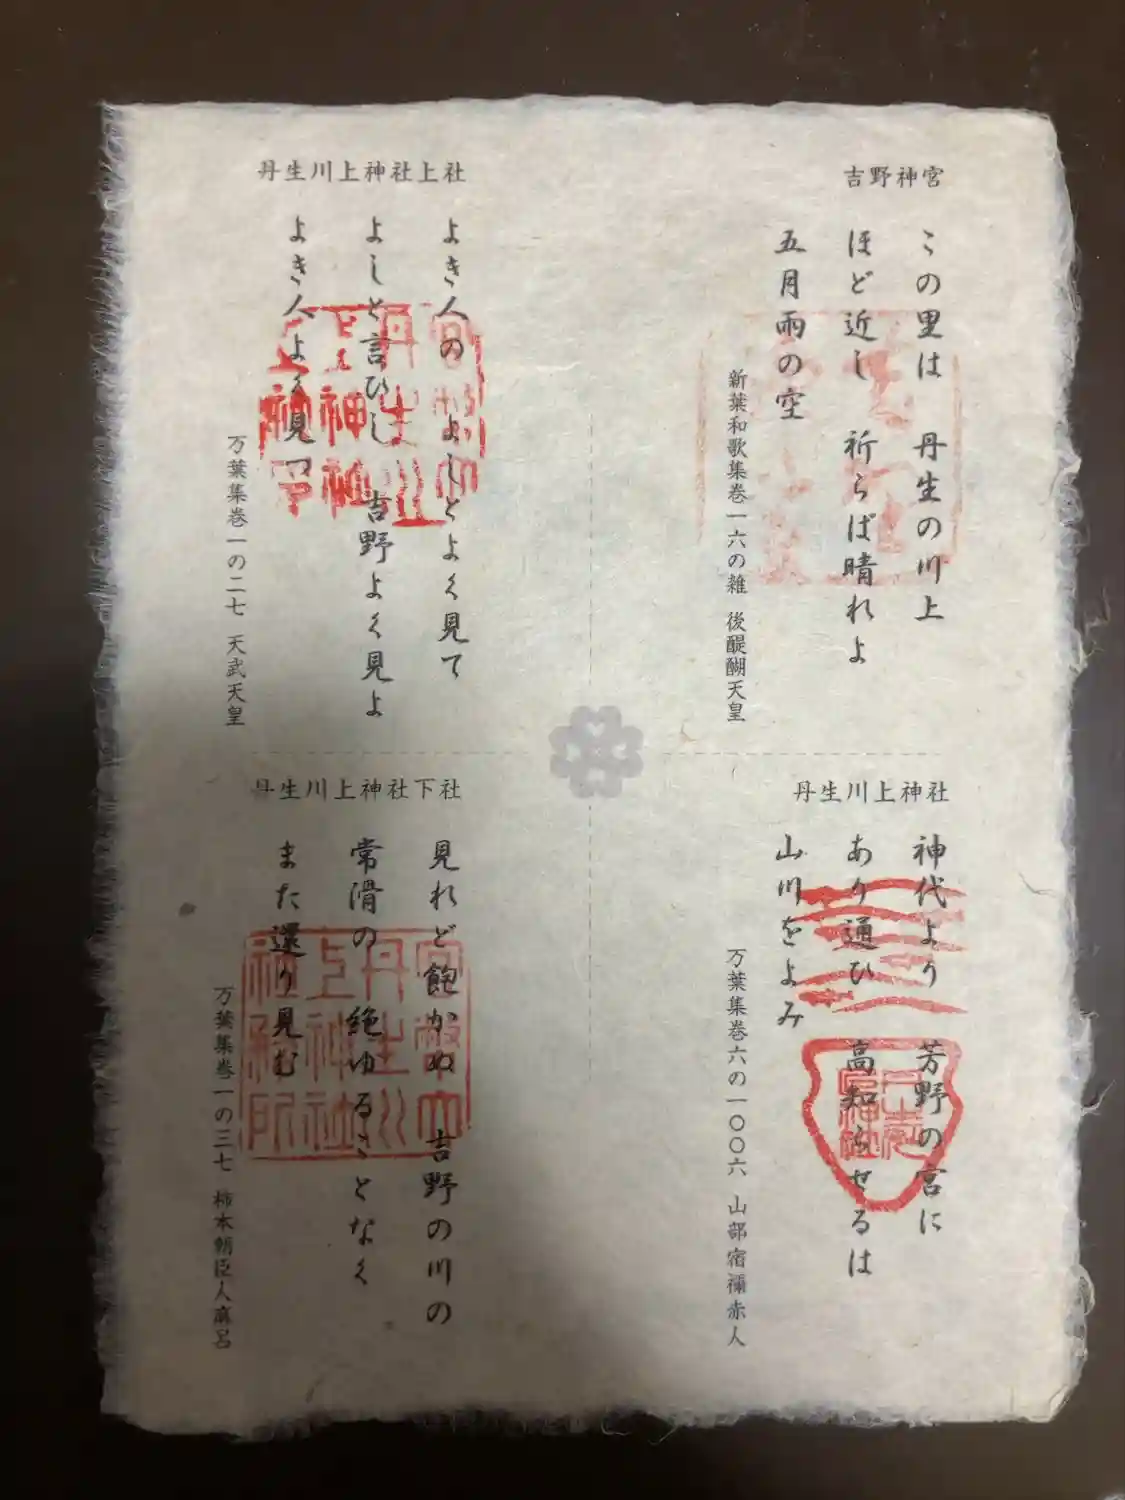 吉野神宮
この里は　丹生の川上
ほど近し　祈らば晴れよ
五月雨の空
新葉和歌集巻一六の雑　後醍醐天皇
丹生川上神社上社
よき人の　よしとよく見て
よしと言ひし　吉野よく見よ
よき人よく見つ
万葉集巻一の二七　天武天皇
丹生川上神社
神代より　芳野の宮に
あり通ひ　高知らせるは
山川をよみ
万葉集巻六の一〇〇六　山部宿禰赤人
丹生川上神社下社
見れど飽かぬ　吉野の川の
常滑の　絶ゆることなく
また還り見む
万葉集巻一の三七　柿本朝臣人麻呂
官幣大
丹生川
上神社